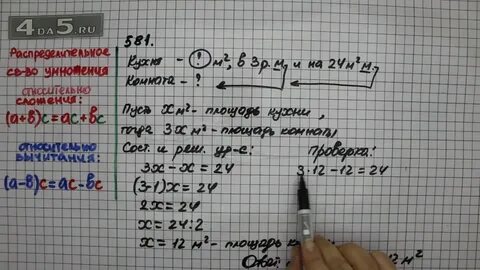 4DA5.RU
Распределительное
св-во умножения
относительно
сложения:
(а+в)с=ас+вс
относительно
вычитания:
(а-в)с=ас-вс
581.
Кухня - ! м², в 3 р. м. и на 24 м² м.
Комната - ?
Пусть х м² - площадь кухни,
тогда 3х м² - площадь комнаты
Сост. и реш. ур-е:
3х - х = 24
(3-1)х = 24
2х = 24
х = 24:2
х = 12 м² - площадь
Проверка:
3·12 - 12 = 24
Ответ
12 м²